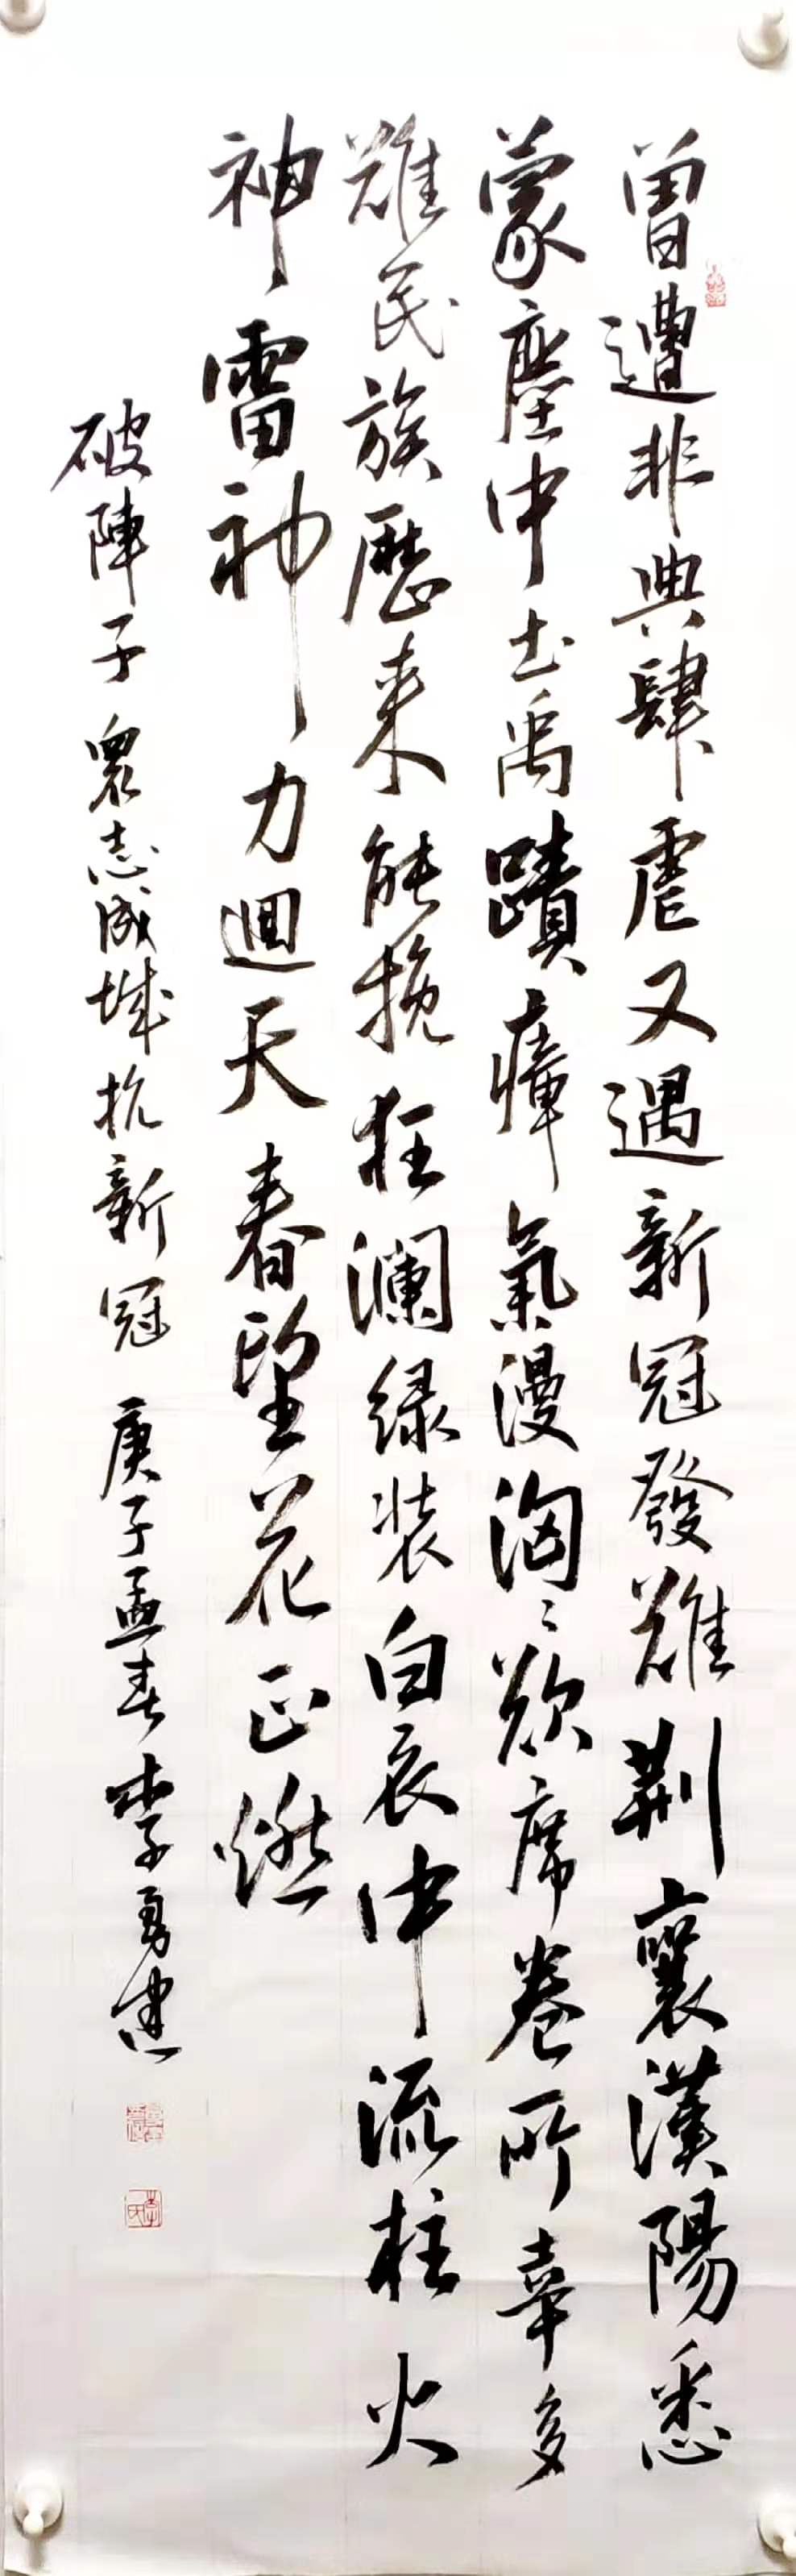 曽遭非典肆虐又遇新冠發難荆襄漢陽悉
蒙塵中土禹蹟瘴氣漫洶〻欲席卷所幸多
難民族歷来能挽狂澜绿装白衣中流柱火
神雷神力迴天春望花正燃
破陣子 衆志成城抗新冠 庚子孟春李勇建